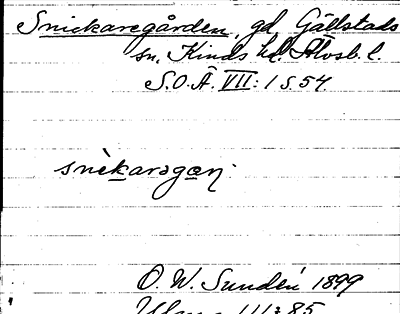 Snickaregården, gd, Gällstads
sn, Kinds hd, Älvsb. l.
S.O.Ä. VII: 1 s. 54.
snèkaragɑɳ.
O. W. Sundén 1899
III: 85